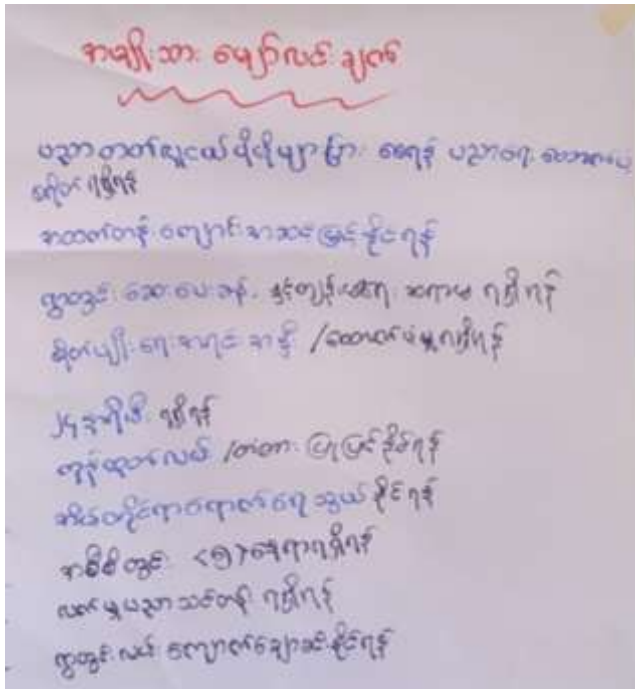 အမျိုးသား မျှော်လင်းချက်
ပညာတတ်လူငယ်မို့မို့များပြား စေရန် ပညာရေး ထောက်ပံ့
ကြေး ရရှိရန်
အထက်တန်း ကျောင်း အဆင့်မြှင့်နိုင်ရန်
ရွာတွင်း ဆေးပေးခန်း နှင့်ကျန်းမာရေး ဆရာမ ရရှိရန်
စိုက်ပျိုးရေးအရင်းအနှီး / ထောက်ပံ့မှုရရှိရန်
၂၄ နာရီမီး ရရှိရန်
ကုန်ထုတ်လမ်း / တံတား ပြုပြင်နိုင်ရန်
အိမ်တိုင်ရာရောက်ရေသွယ်နိုင်ရန်
အစိစိတွင်း (၅) နေရာရရှိရန်
လက်မှုပညာသင်တန်း ရရှိရန်
ရွာတွင်းလမ်း ကျောက်ချောခင်းနိုင်ရန်